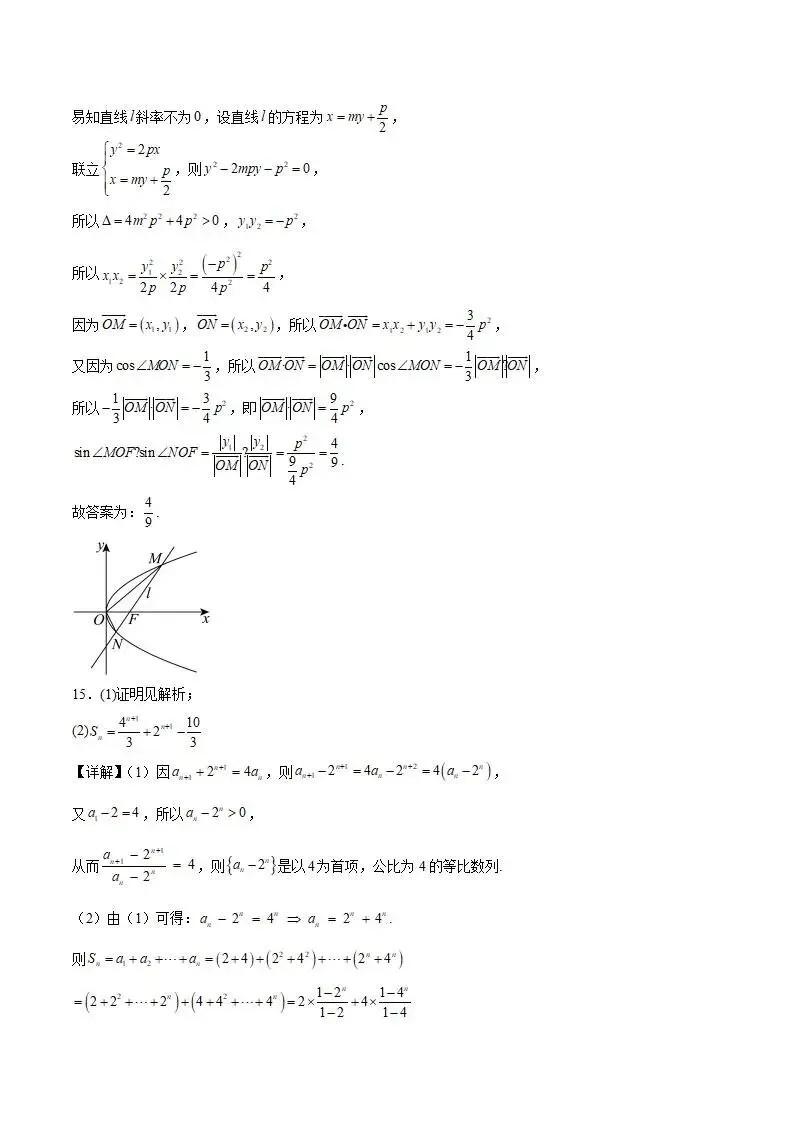 易知直线 l 斜率不为 0，设直线 l 的方程为 x = my + p/2，
联立 { y² = 2px, x = my + p/2，则 y² − 2mpy − p² = 0，
所以 Δ = 4m²p² + 4p² > 0，y₁y₂ = −p²，
所以 x₁x₂ = y₁²/2p × y₂²/2p = (−p²)²/4p² = p²/4，
因为 \overrightarrow{OM} = (x₁, y₁)，\overrightarrow{ON} = (x₂, y₂)，所以 \overrightarrow{OM}•\overrightarrow{ON} = x₁x₂ + y₁y₂ = −3/4 p²，
又因为 cos∠MON = −1/3，所以 \overrightarrow{OM}·\overrightarrow{ON} = |\overrightarrow{OM}|·|\overrightarrow{ON}| cos∠MON = −1/3 |\overrightarrow{OM}|?|\overrightarrow{ON}|，
所以 −1/3 |\overrightarrow{OM}|·|\overrightarrow{ON}| = −3/4 p²，即 |\overrightarrow{OM}|·|\overrightarrow{ON}| = 9/4 p²，
sin∠MOF?sin∠NOF = |y₁|/|\overrightarrow{OM}| ? |y₂|/|\overrightarrow{ON}| = p²/(9/4 p²) = 4/9．
故答案为：4/9．
y
M
l
O F x
N
15．(1)证明见解析；
(2) Sₙ = 4ⁿ⁺¹/3 + 2ⁿ⁺¹ − 10/3
【详解】（1）因 aₙ₊₁ + 2ⁿ⁺¹ = 4aₙ，则 aₙ₊₁ − 2ⁿ⁺¹ = 4aₙ − 2ⁿ⁺² = 4(aₙ − 2ⁿ)，
又 a₁ − 2 = 4，所以 aₙ − 2ⁿ > 0，
从而 (aₙ₊₁ − 2ⁿ⁺¹)/(aₙ − 2ⁿ) = 4，则 {aₙ − 2ⁿ} 是以 4 为首项，公比为 4 的等比数列.
（2）由（1）可得：aₙ − 2ⁿ = 4ⁿ ⇒ aₙ = 2ⁿ + 4ⁿ．
则 Sₙ = a₁ + a₂ + ⋯ + aₙ = (2 + 4) + (2² + 4²) + ⋯ + (2ⁿ + 4ⁿ)
= (2 + 2² + ⋯ + 2ⁿ) + (4 + 4² + ⋯ + 4ⁿ) = 2 × (1 − 2ⁿ)/(1 − 2) + 4 × (1 − 4ⁿ)/(1 − 4)